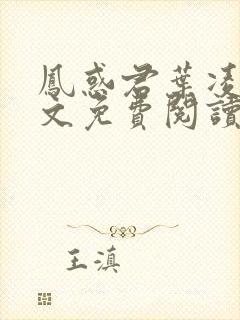 鳳惑君葉凌
文免費閱讀
王滇